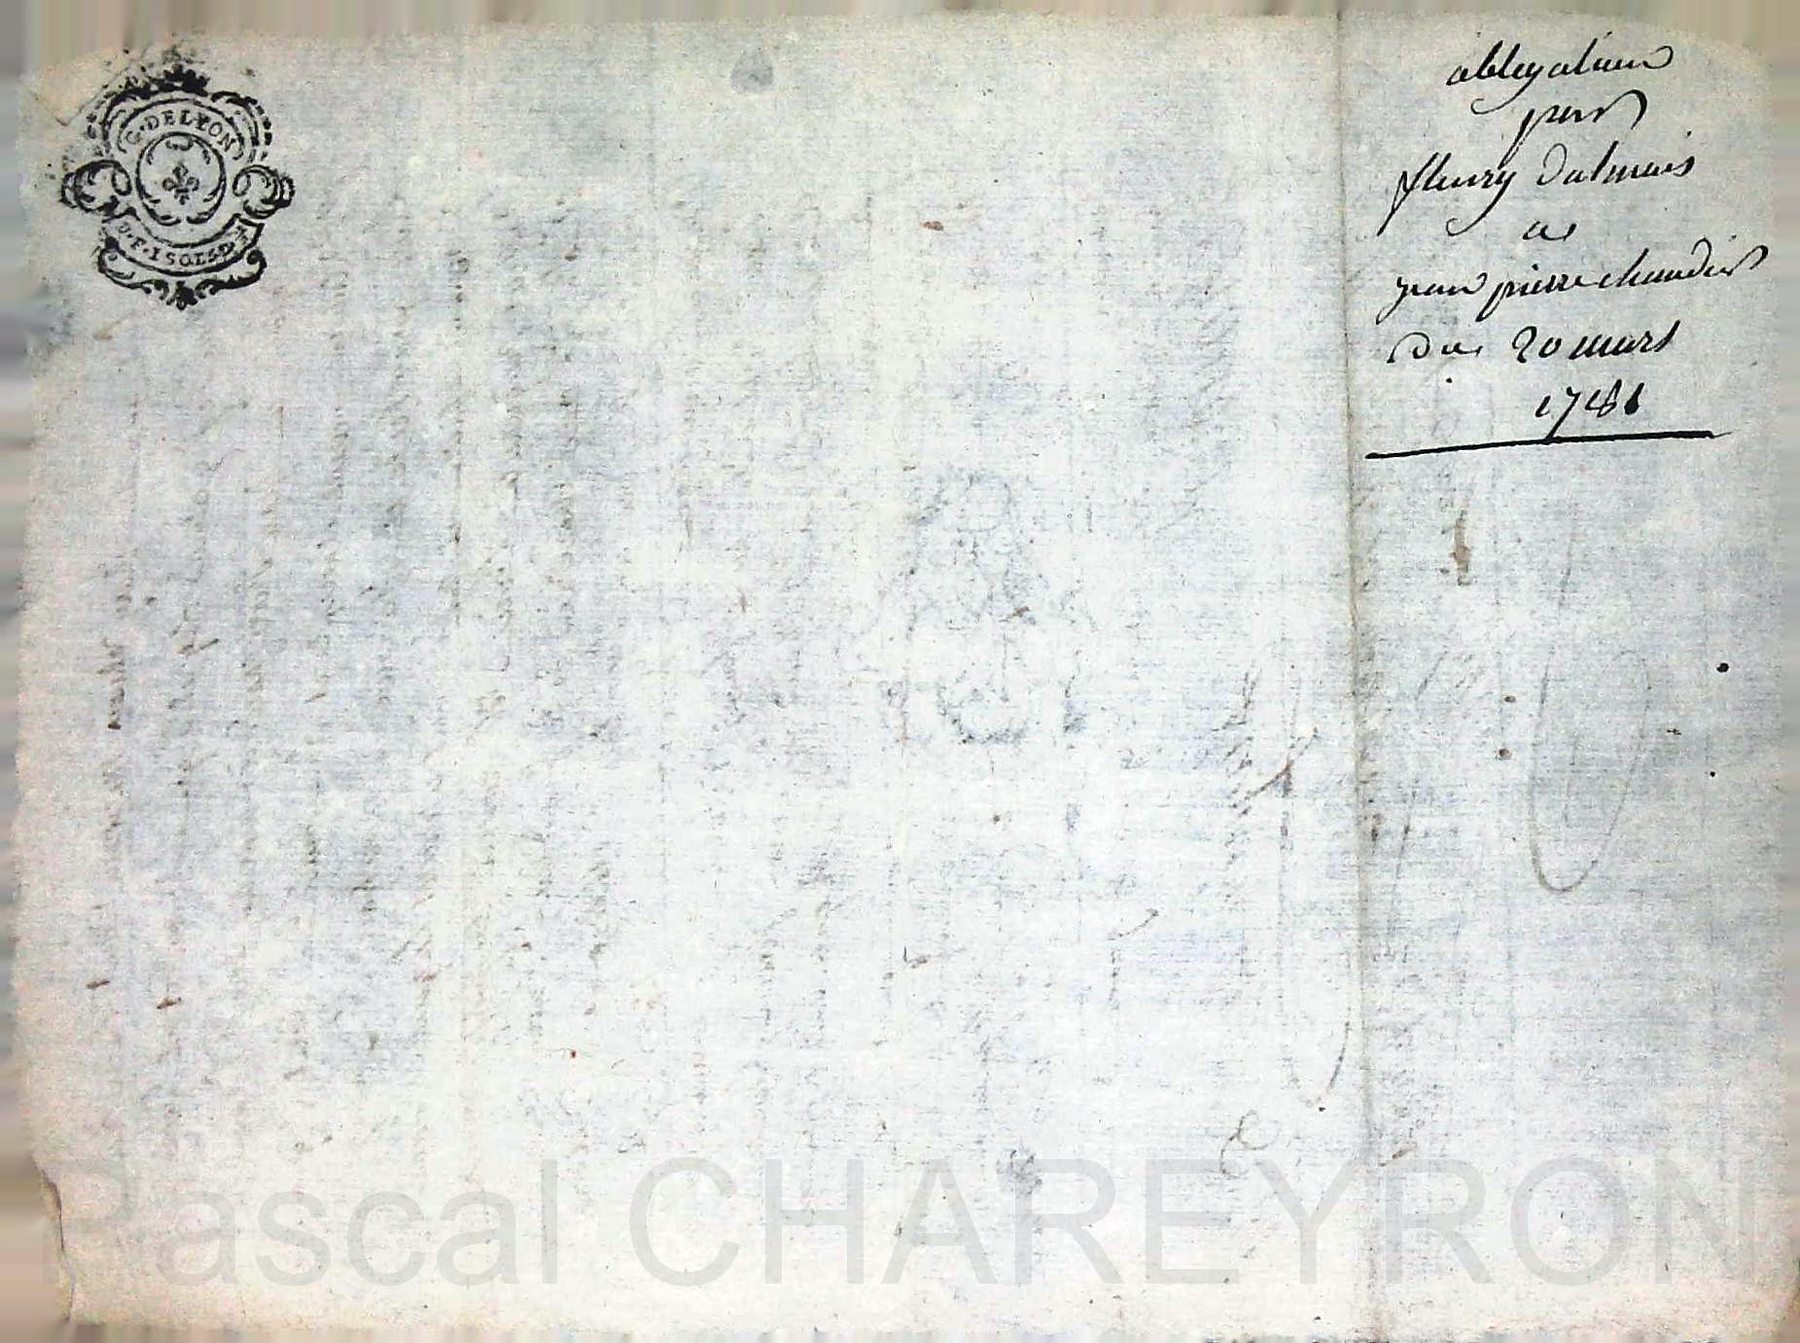 G. DE LYON
D. F. 1 SOL 4 D.
obligation
par
fleury dalmais
a
jean pierre chaudier
du 20 mars
1781
Pascal CHAREYRON